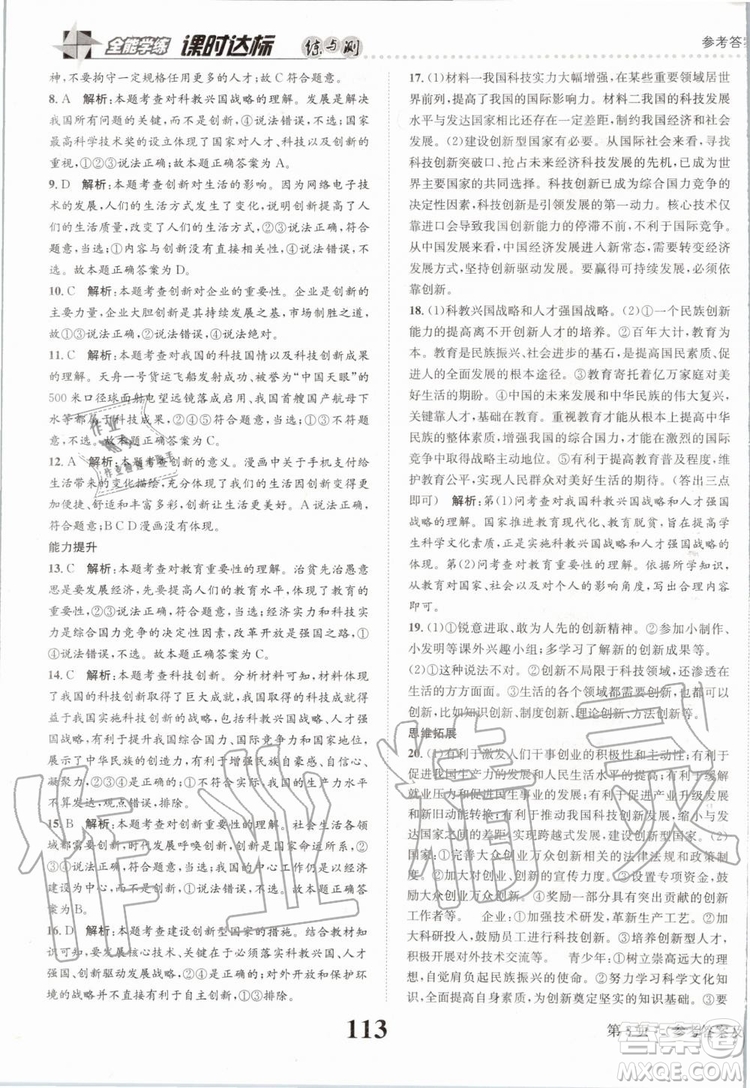 全能学练 课时达标 练与测
参考答案
神,不拘于一定规格任用更多的人才;故符合题意。
8. A 解析:本题考查对科教兴国战略的理解。发展是解决
我国所有问题的关键,而不是创新,④说法错误,不选。国家
最高科学技术奖的设立体现了国家对人才、科技创新、科技
的重视,①②③说法正确;故本题正确答案为A。
9. D 解析:本题考查创新对生活的影响。因为网络电子技
术的发展,人们的生活方式发生了变化,创新提高了人们的
生活质量,改变了人们的生活方式,②④说法正确,符合题
意,当选;①内容与创新没有直接相关性;③说法错误,不
选。故本题正确答案为D。
10. C 解析:本题考查创新对企业的重要性。企业是创新的
主要力量,企业大胆创新是其在商战中,市场制胜之本,故
②③符合题意;①说法错误,④说法绝对。
11. C 解析:本题考查对我国的科技国情以及科技创新成果
的理解。天舟一号货运飞船发射、被誉为“中国天眼”的
500米口径球面射电望远镜落成启用、我国首艘国产航母下
水等都属于科技成果。故②④⑤符合题意。①③不符合题
意,不选。故本题正确答案为C。
12. A 解析:本题考查创新的意义。漫画中关于手机支付给
生活带来的变化的描绘,体现了创新让生活更加便捷、生动
有趣、创造和丰富多彩,创新无处不在,创新改变生活,故A
符合题意,正确入选;BCD漫画没有体现。
能力提升
13. C 解析:本题考查教育重要性的理解。治贫先治愚意思
是要发展经济,先要提高人的素质,要优先发展教育,教育
是提高人的素质的根本途径,②③④说法正确,符合题意。
科学技术是综合国力竞争的决定性因素,改革开放是强国
之路,①说法错误。故本题正确答案为C。
14. C 解析:本题考查科技创新。分析材料可知,材料体现
了我国的科技创新取得了巨大成就,我国取得这些成就得
益于我国实施科技创新的战略,包括科教兴国战略、人才强
国战略等,有利于提升我国综合国力、国际竞争力和国家地
位,展示了中华民族的创造精神,增强了民族自尊心、自信心、
凝聚力,①③④符合题意;②不符合实际,我国的生产力水平
不平衡、不发达,观点错误,排除。
15. B 解析:本题考查创新重要性的理解。社会生活各领
域都需要创新,时代发展呼唤创新,创新是国家兴旺发达的
不竭动力,创新关系国家命运,①②④说法正确,符合题意,
入选;我国的中心工作仍然是经济建设,③说法错误,排除。
故本题答案为B。
16. D 解析:本题考查建设创新型国家的措施。结合教材知
识可知,要改变落后的技术在于必须落实科教兴国战略、人
才强国战略;对外开放和保护环境与题意无关,①③④不符
合题意,排除。
17. (1)材料一我国科技实力大幅增强,在某些重要领域居世
界前列,提高了我国的国际影响力。材料二我国的科技发展
水平与发达国家相比还有一定差距,要建设创新型国家任
重道远。(2)建设创新型国家有必要。从国际社会看,寻找
科技创新突破口、抢占未来经济科技发展的先机,已成为世
界性大趋势;科技创新已成为综合国力竞争的决定性因素,
科技创新是引领发展的第一动力。仅仅靠引进发达国家技
术会导致我国创新能力的停滞不前,不利于国际竞争。
从中国发展来看,中国经济发展进入新常态,需要转变经济
发展方式,坚持创新驱动发展。要赢得可持续发展,需坚持
创新。
18. (1)科教兴国战略和人才强国战略。(2)①一个民族创新
能力的提高离不开创新人才的培养。②百年大计,教育为
本。教育是民族振兴、社会进步的基石,是提高国民素质、促
进人的全面发展的根本途径。③教育寄托着亿万家庭对美
好生活的期盼。④教育发展为实现中华民族伟大复兴的中
国梦培养人才,基础在教育。重视教育有利于从根本上提高中华
民族的整体素质,增强我国的综合国力,在激烈的国际竞争
中取得战略主动地位。⑤优先发展教育,有利于保障公民权利,
维护教育公平,满足人民对美好生活的期待。(答出三点
即可) 解析:第(1)问考查对我国科教兴国战略和人才强国
战略的理解。各级政府的做法重视教育发展,有利于提高学
生科学文化素质,培养更多创新型人才,体现我国实施科教
兴国战略。第(2)问考查对教育重要性的理解,可以从教育
对国家、社会、人民的重要性来回答,注意角度全面,要点
有序。
19. (1)①锐意进取、敢为人先的创新精神。②参加小制作、
小发明等课外兴趣小组;多学习了解新的创新成果等。
(2)①这种观点不正确。②创新不局限于科技领域,还渗透在
生活的方方面面。③生活的各个领域都需要创新,有科技
创新,比如知识创新、制度创新、理论创新、方法创新等。
思维拓展
20. (1)有利于激发人们干事创业的积极性和主动性;有利于
促进中国经济发展和人民生活水平的提高;有利于更好地
优化经济结构,转变发展方式,促进产品更新和产业升级发
展;有利于提高我国的科技水平和创新水平,缩小与发达
发达国家的差距,实现跨越式发展;实现民族振兴等。(2)
国家:①完善大众创业万众创新的法律法规和政策制度。
②加大大众创业万众创新的宣传。③设立专项资金,鼓励大
众创业万众创新。④奖励一部分具有突出贡献的创新
工作者等。 企业:①加强技术研发,革新生产工艺。②加
大科研投入,重用创新人才,进行科技创新。③培养创新人才,加强
对外技术交流等。 青少年:①树立崇高远大的
理想,自觉肩负起民族振兴的使命。②努力学习科学文化知
识,为创新奠定坚实的知识基础。③积极参加社会实践活
动,不断提高创新素质和能力。
113
作业精灵
答案圈
MXQE.COM